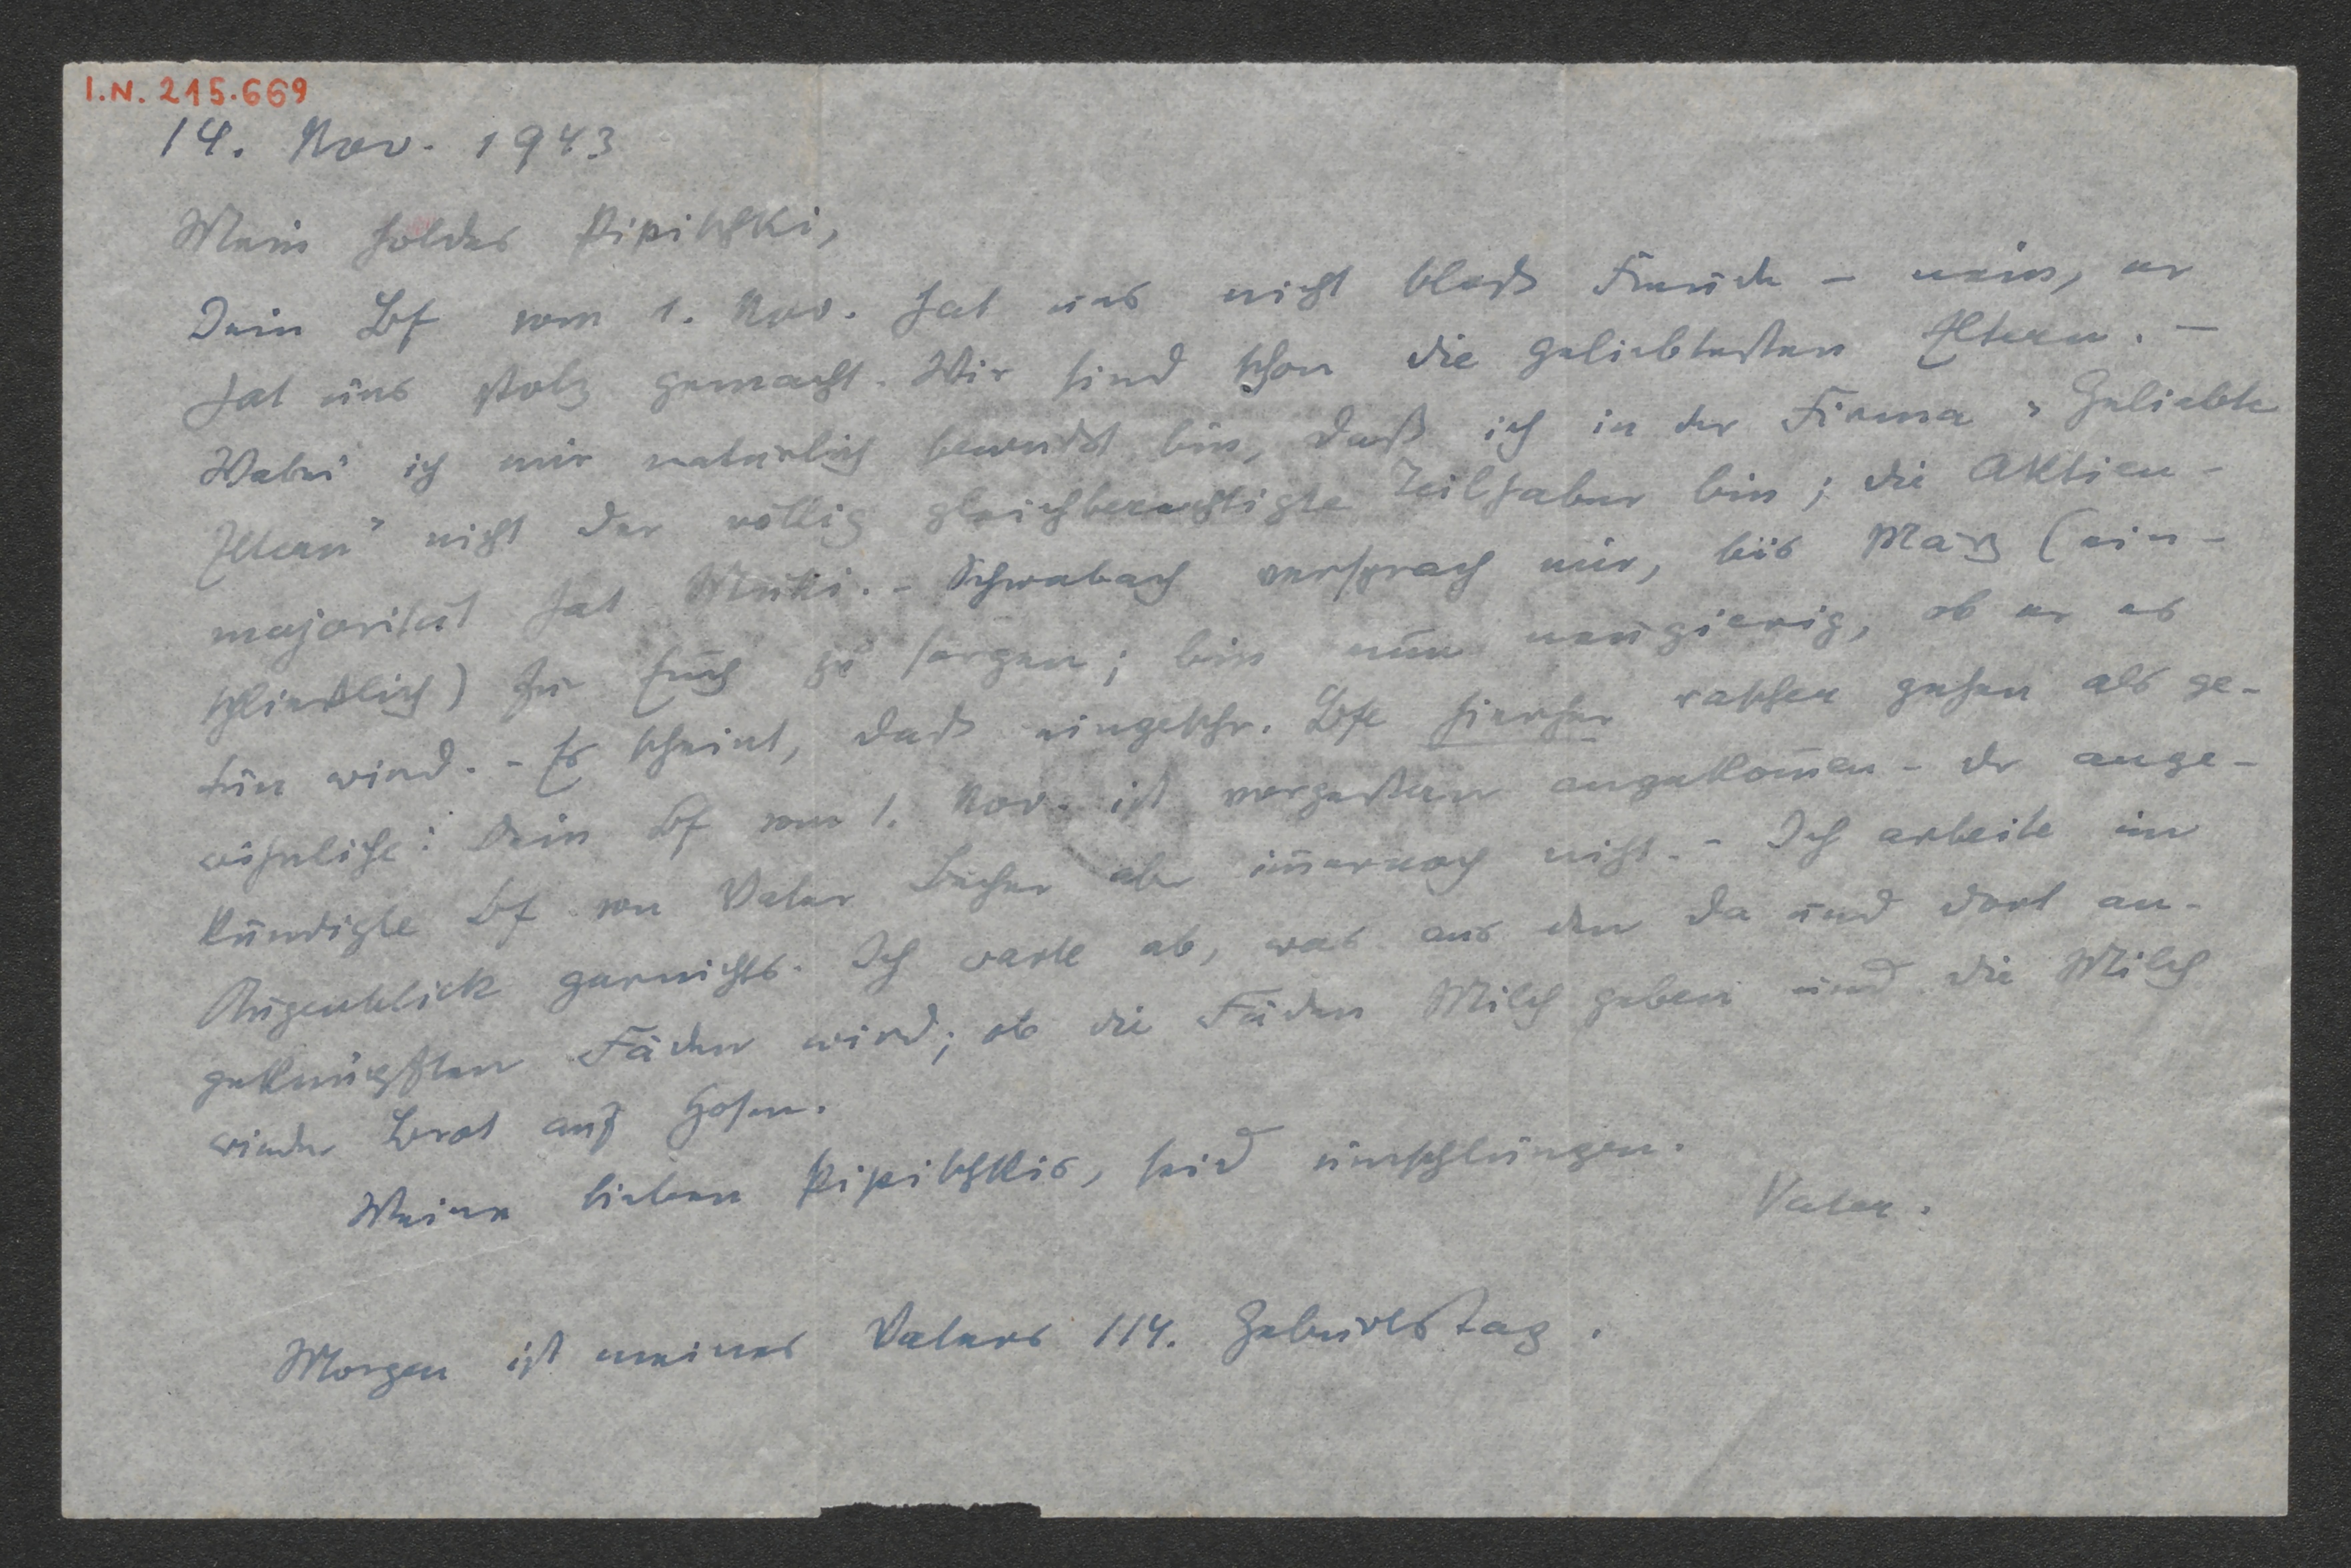 I.N. 215.669
14. Nov. 1943
Mein holdes Pipitschki,
Dein Bf vom 1. Nov. hat uns nicht bloß Freude – nein, er
hat uns stolz gemacht. Wir sind schon die geliebtesten Eltern. –
Wobei ich mir natürlich bewußt bin, daß ich in der Firma "Geliebte
Eltern" nicht der völlig gleichberechtigte Teilhaber bin; die Aktien-
majorität hat Muki. – Schwabach versprach mir, bis März (ein-
schließlich) für Euch zu sorgen; bin nun neugierig, ob er es
tun wird. – Es scheint, daß eingeschr. Bfe hierher rascher gehen als ge-
wöhnliche: Dein Bf vom 1. Nov. ist vorgestern angekom̅en – der ange-
kündigte Bf von Vater Becher aber im̅ernoch nicht. – Ich arbeite im
Augenblick garnichts. Ich warte ab, was aus den da und dort an-
geknüpften Fäden wird; ob die Fäden Milch geben und die Milch
wieder Brot auf Hosen.
Meine lieben Pipitschkis, seid umschlungen.
Vater.
Morgen ist meines Vaters 114. Geburtstag.